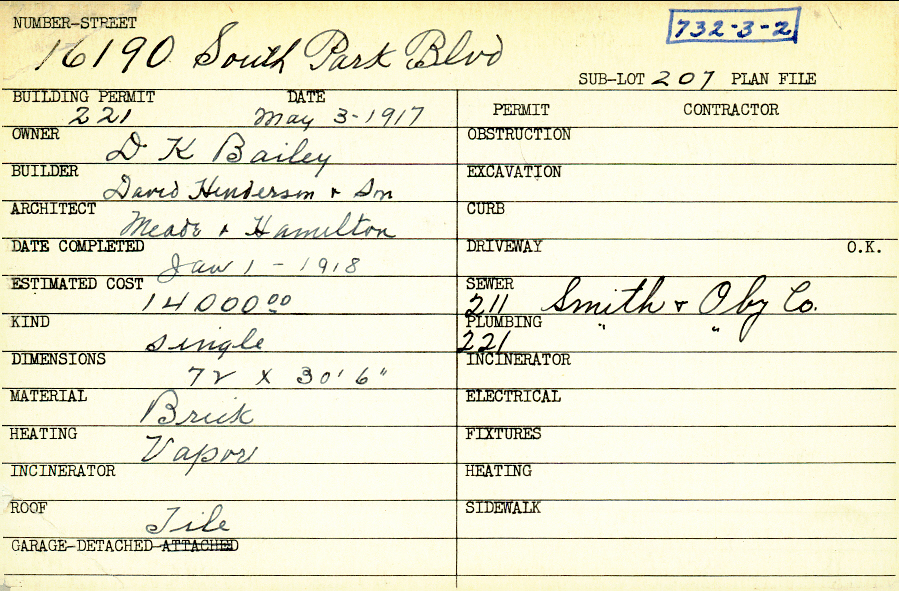 NUMBER-STREET
732-3-2
16190 South Park Blvd
SUB-LOT 207 PLAN FILE
BUILDING PERMIT DATE
221 May 3-1917
PERMIT CONTRACTOR
OWNER
D K Bailey
OBSTRUCTION
BUILDER
David Henderson & Son
EXCAVATION
ARCHITECT
Meade & Hamilton
CURB
DATE COMPLETED
Jan 1 - 1918
DRIVEWAY O.K.
ESTIMATED COST
14000 00
SEWER
211 Smith & Oby Co.
KIND
single
PLUMBING " "
221
DIMENSIONS
72 X 30'6"
INCINERATOR
MATERIAL
Brick
ELECTRICAL
HEATING
Vapor
FIXTURES
INCINERATOR
HEATING
ROOF
Tile
SIDEWALK
GARAGE-DETACHED-ATTACHED